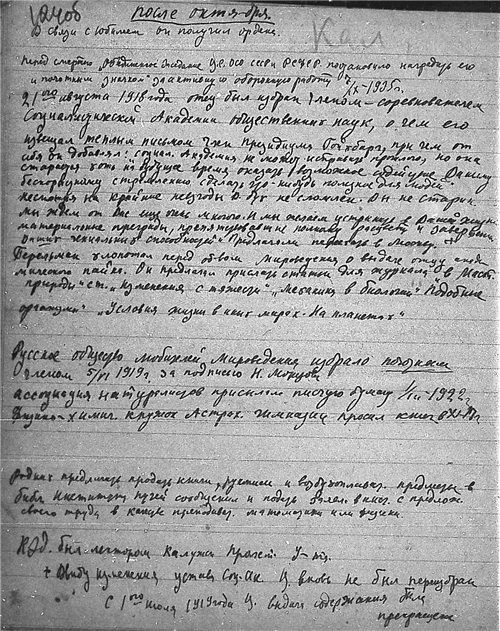 после октября.
В связи с юбилеем он получил орден.
Кал.
Перед смертью объединенное заседание Ц.С. ОСО СССР и РСФСР постановило наградить его
и почетным знаком "за активную оборонную работу"
21го августа 1918 года отец был избран членом-соревнователем
Социалистической Академии общественных наук, о чем его
извещал теплым письмом член президиума при чем от
себя он добавлял: социал. Академия не может исправить прошлого, но она
старается хоть на будущее время оказать возможное содействие Вашему
бескорыстному стремлению сделать что-нибудь полезное для людей.
несмотря на крайние невзгоды дух не сломлен. Он не старик.
мы ждем от Вас еще очень многого. И мы желаем устранить в Вашей жизни
материальные преграды, препятствующие полному расцвету и завершению
способностей" Предлагали переехать в Москву.
Перельман хлопотал перед об-вом Мироведения о выдаче отцу
пайка. Он предлагал прислать статьи для журнала "
природы" ст. "изменения тяжести" "Механика в биологии" Подобие
организмов" "Условия жизни в иных мирах. На планетах"
Русское общество любителей Мироведения избрало почетным
членом 5/VI 1919г. за подписью Н. Морозова
ассоциация натуралистов прислала писчую бумагу 1922г.
Физико-химич. кружок Астрах. гимназии просил книг в
предлагать продать книги, рукописи и воздухоплават. предметы в
библ. института путей сообщения и подать с предлож.
своего труда в качестве преподават. математики или физики.
был лектором Калужск. пролет. у-та.
+ Ввиду изменения устава Соц. Ак. Ц. вновь не был переизбран
С 1го июля 1919 года Ц. выдача содержания
прекращена